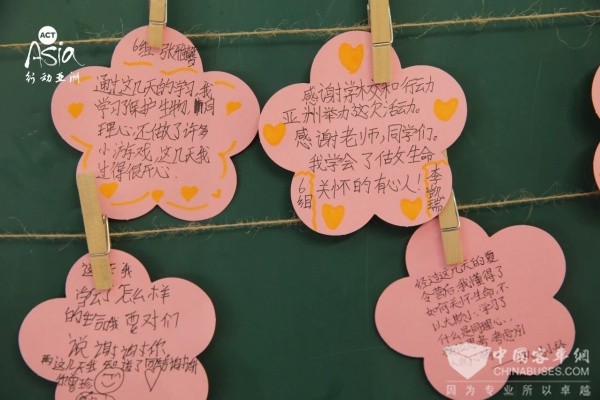 ACT
Asia
行动亚洲
6组 张
通过这几天的学习,我
学习了保护生物,
理心,还做了许多
小游戏,这几天我
过得很开心.
感谢学校和行动
亚洲举办这次活动。
感谢老师,同学们。
我学会了做生命
关怀的有心人!
6组
李凯瑞
我
学会了怎么样
的生命 要对们
说谢谢你
这几天我
经过这几天的夏
令营后,我懂得了
如何关怀生命,不
以大欺小,学习了
什么是同理心..
考虑别
中国客车网
CHINABUSES.COM
因为专业所以卓越